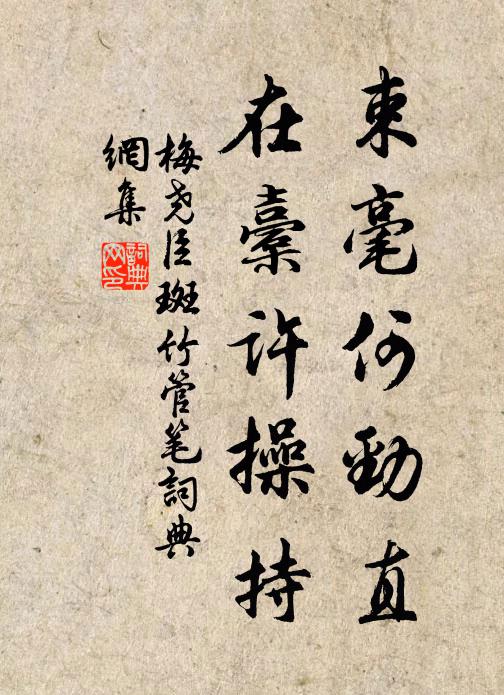 束毫何勁直
在橐許操持
梅尧臣斑竹管笔詞典
網集
詞典
网印